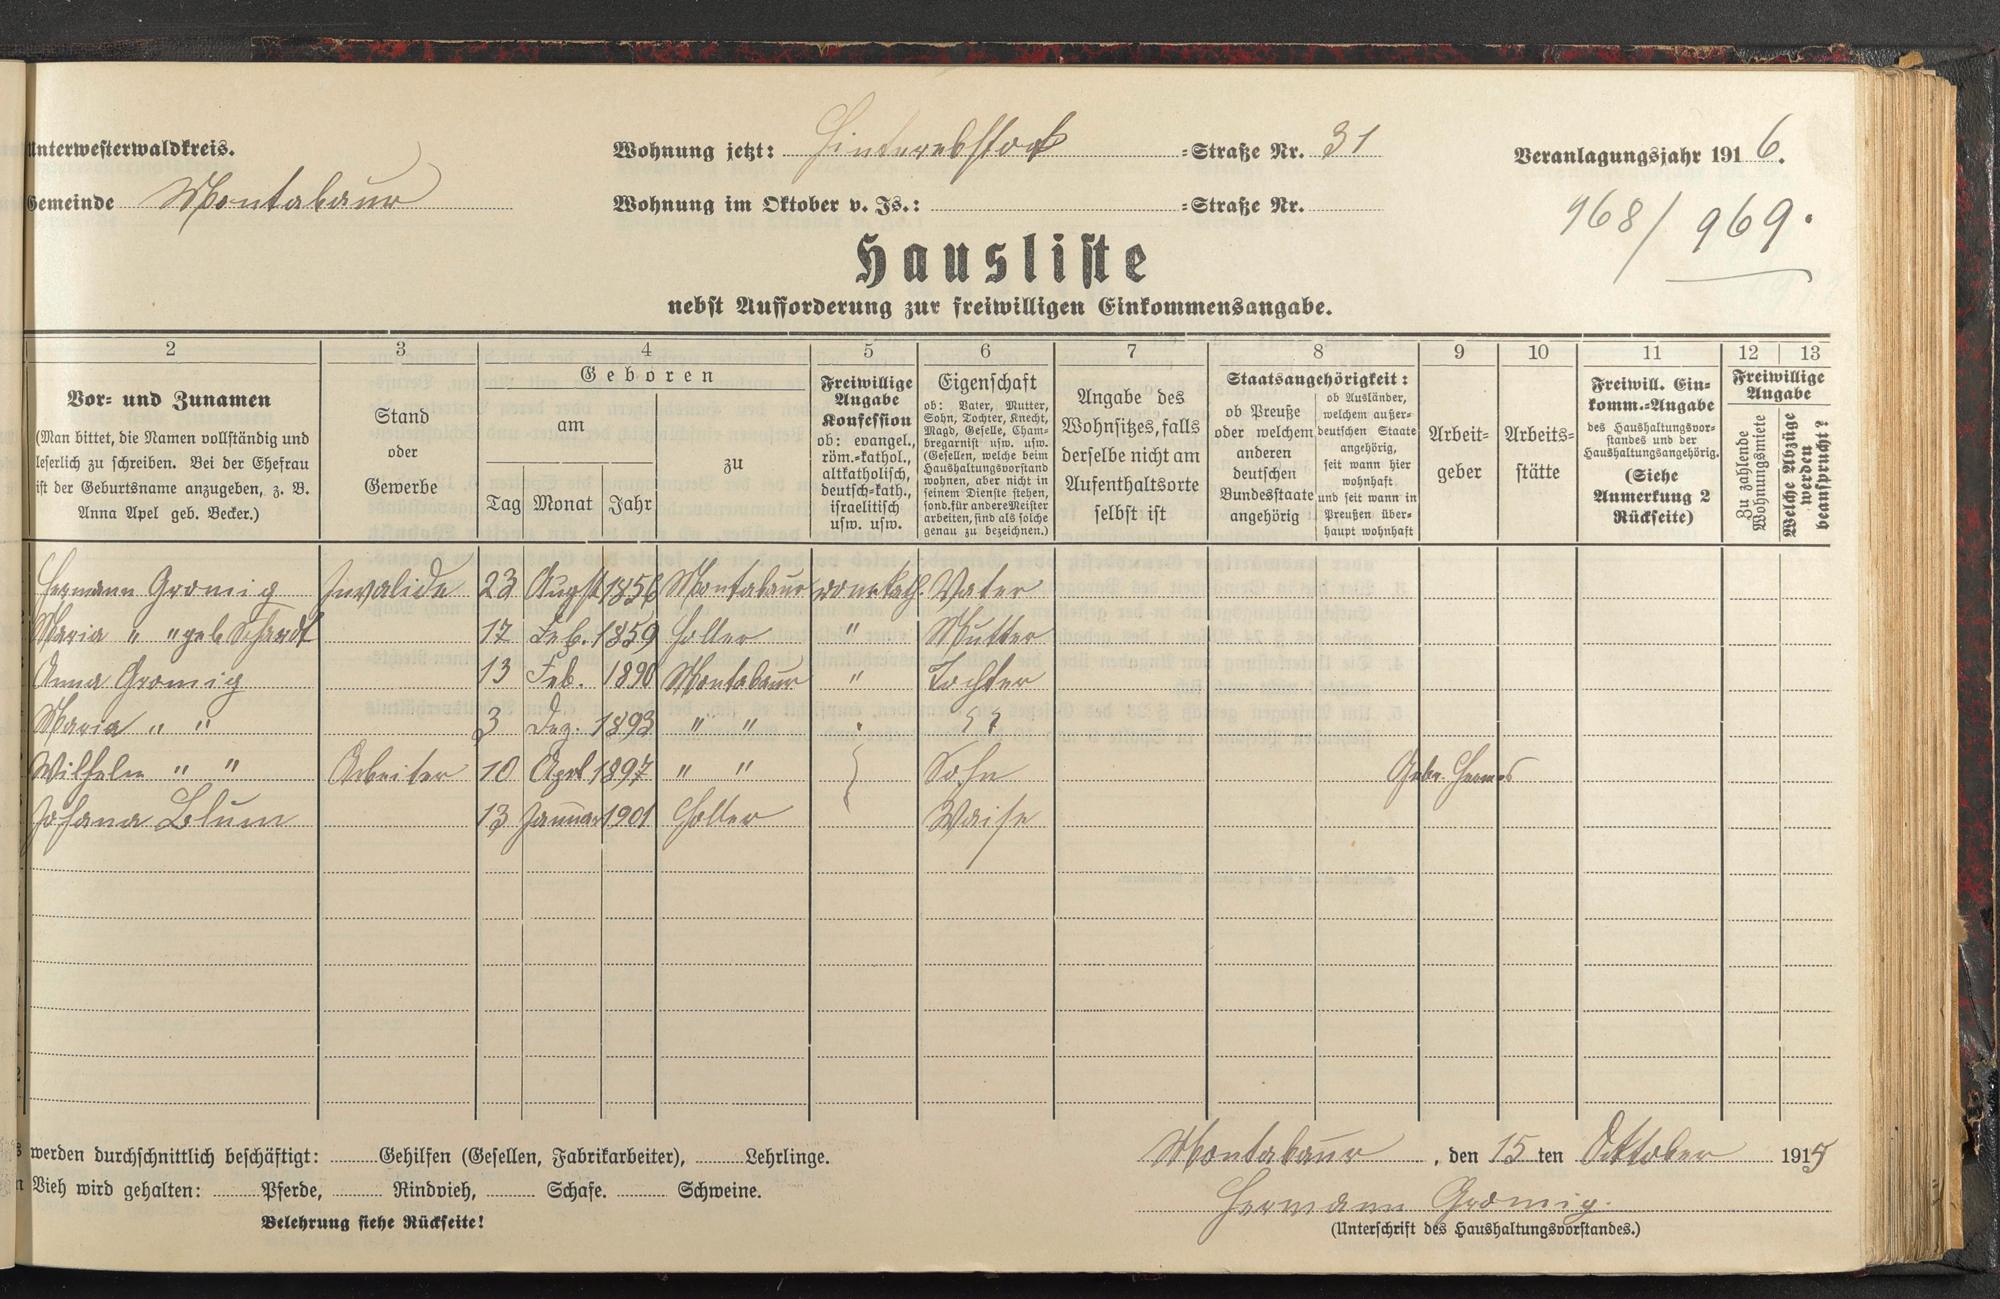 Unterwesterwaldkreis.
Wohnung jetzt: Hinterebstock =Straße Nr. 31
Veranlagungsjahr 1916.
Gemeinde Montabaur
Wohnung im Oktober v. Js.: =Straße Nr.
968/969.
Hausliste
nebst Aufforderung zur freiwilligen Einkommensangabe.
2 3 4 5 6 7 8 9 10 11 12 13
Vor- und Zunamen
(Man bittet, die Namen vollständig und
leserlich zu schreiben. Bei der Ehefrau
ist der Geburtsname anzugeben, z. B.
Anna Apel geb. Becker.)
Stand
oder
Gewerbe
Geboren
am
Tag Monat Jahr
zu
Freiwillige
Angabe
Konfession
ob: evangel.,
röm.-kathol.,
altkatholisch,
deutsch-kath.,
israelitisch
usw. usw.
Eigenschaft
ob: Vater, Mutter,
Sohn, Tochter, Knecht,
Magd, Geselle, Cham-
bregarnist usw. usw.
(Gesellen, welche beim
Haushaltungsvorstand
wohnen, aber nicht in
seinem Dienste stehen,
sond. für andere Meister
arbeiten, sind als solche
genau zu bezeichnen.)
Angabe des
Wohnsitzes, falls
derselbe nicht am
Aufenthaltsorte
selbst ist
Staatsangehörigkeit:
ob Preuße
oder welchem
anderen
deutschen
Bundesstaate
angehörig
ob Ausländer,
welchem außer-
deutschen Staate
angehörig,
seit wann hier
wohnhaft
und seit wann in
Preußen über-
haupt wohnhaft
Arbeit-
geber
Arbeits-
stätte
Freiwill. Ein-
komm.-Angabe
des Haushaltungsvor-
standes und der
Haushaltungsangehörig.
(Siehe
Anmerkung 2
Rückseite)
Freiwillige
Angabe
Zu zahlende
Wohnungsmiete
Welche Abzüge
werden
beansprucht?
Hermann Gromig Invalide 23 August 1856 Montabaur römkath. Vater
Maria " " geb Schardt 17 Feb. 1859 Holler " Mutter
Anna Gromig 13 Feb. 1890 Montabaur " Tochter
Maria " " 3 Dez. 1893 " " "
Wilhelm " " Arbeiter 10 April 1897 " " Sohn Gebr. Hermes
Johana Blum 13 Januar 1901 Holler Waise
werden durchschnittlich beschäftigt: Gehilfen (Gesellen, Fabrikarbeiter), Lehrlinge.
Montabaur, den 15 ten Oktober 1915
Vieh wird gehalten: Pferde, Rindvieh, Schafe. Schweine.
Hermann Gromig.
Belehrung siehe Rückseite!
(Unterschrift des Haushaltungsvorstandes.)